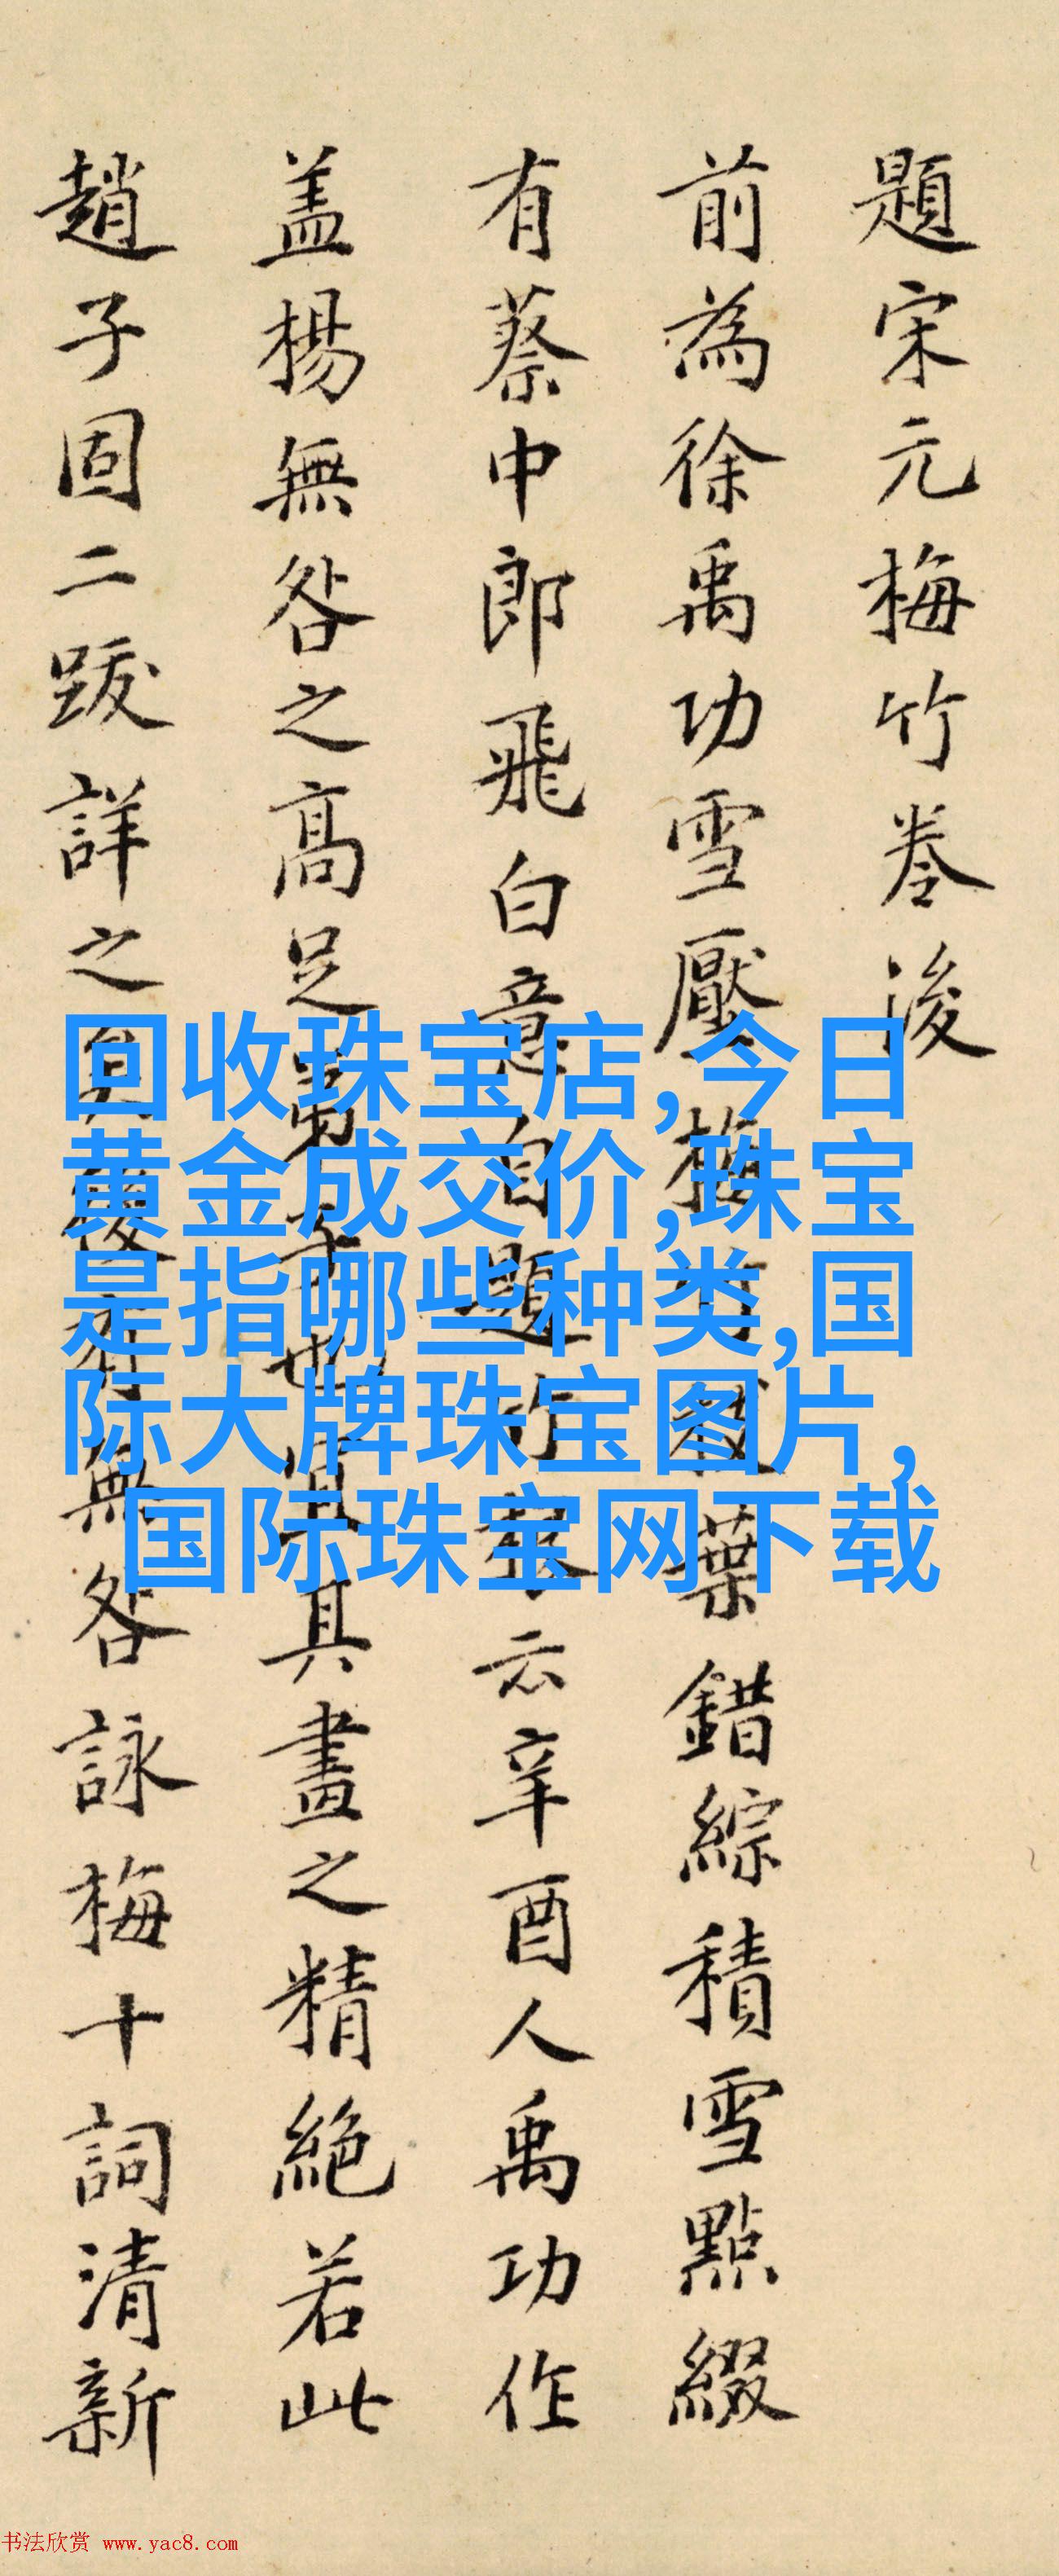 題宋元梅竹卷後
前為徐禹功雪壓梅竹枝葉錯綜積雪點綴
有蔡中郎飛白意自題竹卷云辛酉人禹功作
盖楊無咎之高足弟子也宜其畫之精絕若此
趙子固二跋詳之矣後有無咎詠梅十詞清新
回收珠宝店,今日
黄金成交价,珠宝
是指哪些种类,国
际大牌珠宝图片,
国际珠宝网下载
书法欣赏 www.yac8.com